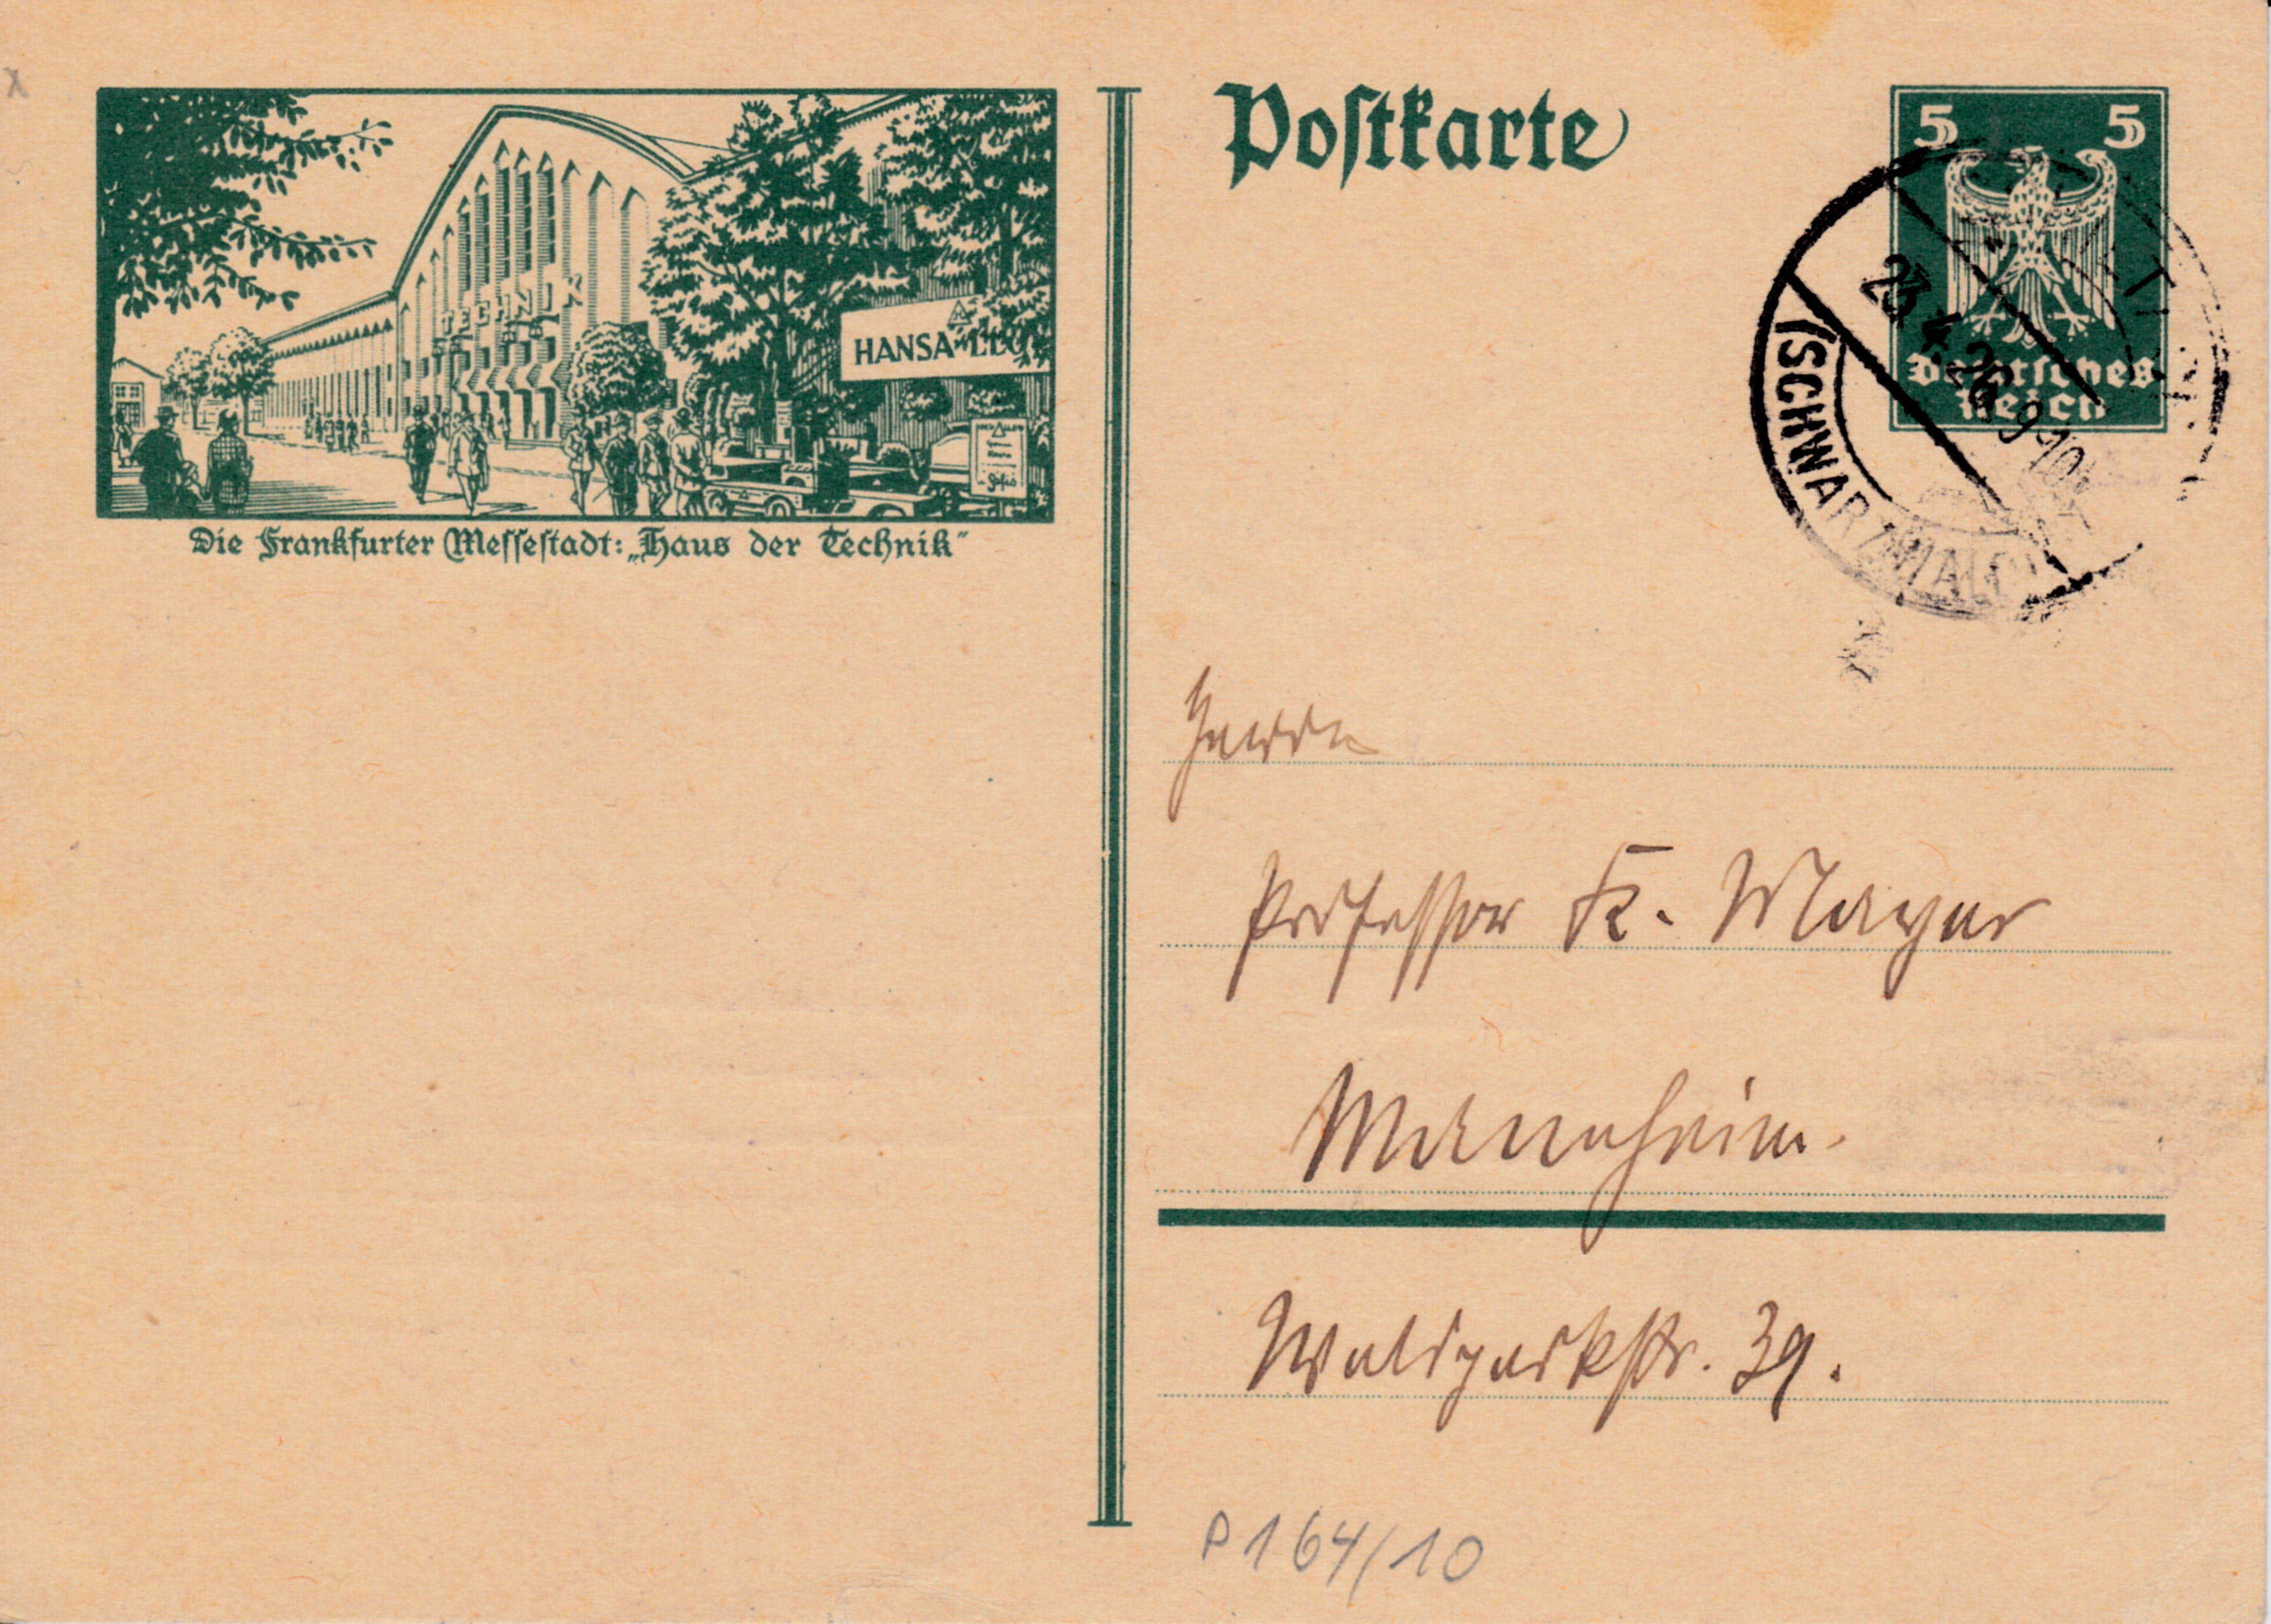 Postkarte
5 5
Deutsches
Reich
23.4.26.9-10
(SCHWARZWALD)
TECHNIK
HANSA-LLOYD
Die Frankfurter Messestadt: „Haus der Technik“
Herrn
Professor K. Mayer
Mannheim.
Waldparkstr. 39.
P 164/10